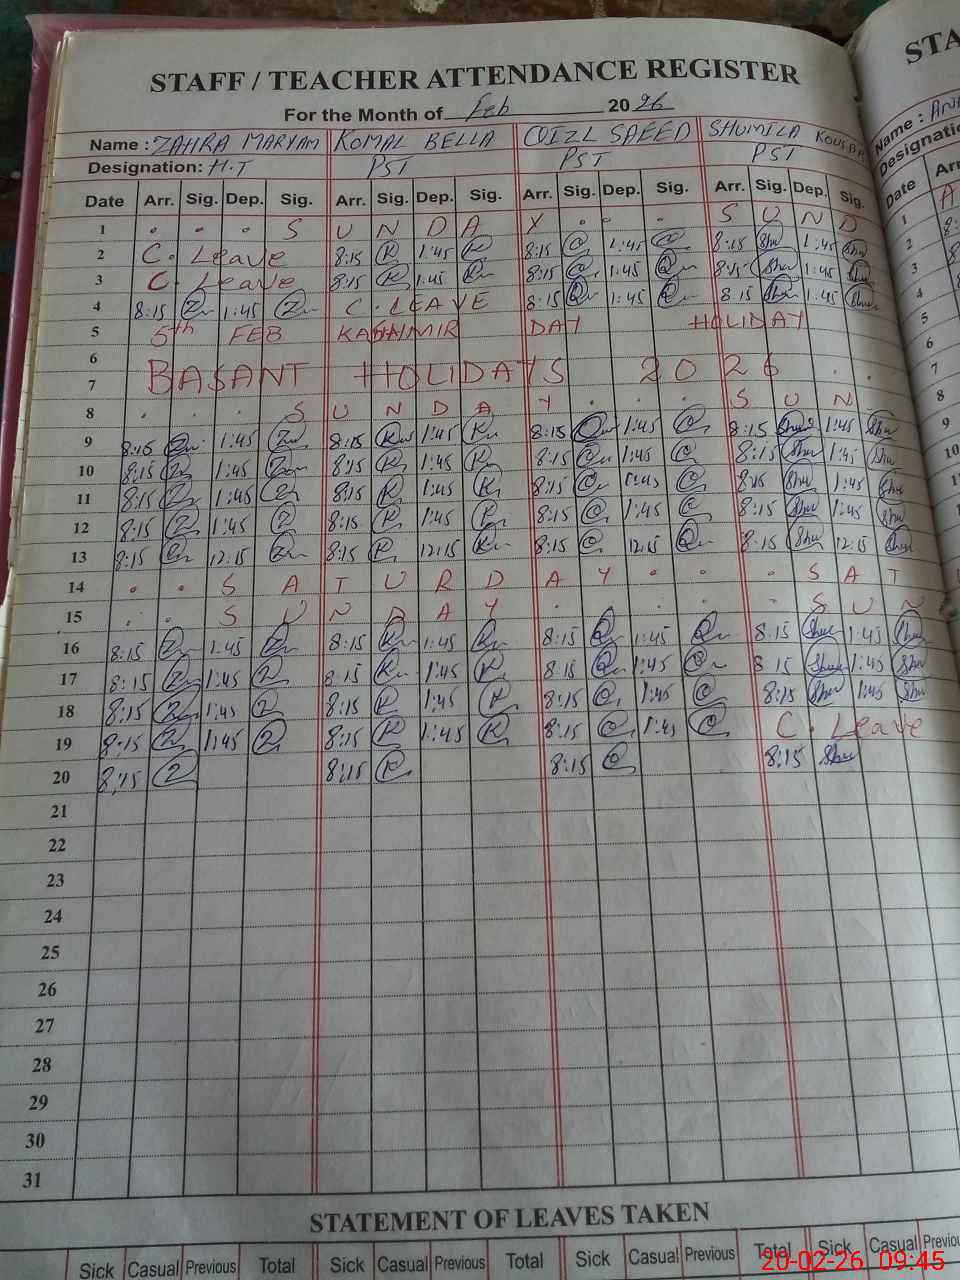 STAFF / TEACHER ATTENDANCE REGISTER
STA
For the Month of Feb 2026
Name : ZAHRA MARYAM KOMAL BELLA SAEED SHUMILA KOUSAR
Name : AN
Designation: H.T PST PST PST
Designatio
Date Arr. Sig. Dep. Sig. Arr. Sig. Dep. Sig. Arr. Sig. Dep. Sig. Arr. Sig. Dep. Sig.
Date Arr
1 . . . S U N D A Y . . . S U N D
2 C. Leave 8:15 K 1:45 K 8:15 1:45 8:15 Shu 1:45 Shu
3 C. Leave 8:15 K 1:45 K 8:15 1:45 8:15 Shu 1:45 Shu
4 8:15 Z 1:45 Z C. LEAVE 8:15 1:45 8:15 Shu 1:45 Shu
5 5th FEB KASHMIR DAY HOLIDAY
6
7 BASANT HOLIDAYS 2026 . .
8 . . . S U N D A Y . . . S U N .
9 8:15 1:45 8:15 K 1:45 K 8:15 1:45 8:15 Shu 1:45 Shu
10 8:15 1:45 8:15 K 1:45 K 8:15 1:45 8:15 Shu 1:45 Shu
11 8:15 1:45 8:15 K 1:45 K 8:15 1:45 8:15 Shu 1:45 Shu
12 8:15 1:45 8:15 K 1:45 K 8:15 1:45 8:15 Shu 1:45 Shu
13 8:15 12:15 8:15 K 12:15 K 8:15 12:15 8:15 Shu 12:15 Shu
14 . . S A T U R D A Y . . . S A T
15 . . S U N D A Y . . . . S U N
16 8:15 1:45 8:15 K 1:45 K 8:15 1:45 8:15 Shu 1:45 Shu
17 8:15 1:45 8:15 K 1:45 K 8:15 1:45 8:15 Shu 1:45 Shu
18 8:15 1:45 8:15 K 1:45 K 8:15 1:45 8:15 Shu 1:45 Shu
19 8:15 1:45 8:15 K 1:45 K 8:15 1:45 C. Leave
20 8:15 8:15 K 8:15 8:15 Shu
21
22
23
24
25
26
27
28
29
30
31
STATEMENT OF LEAVES TAKEN
Sick Casual Previous Total Sick Casual Previous Total Sick Casual Previous Total Sick Casual Previou
20-02-26 09:45